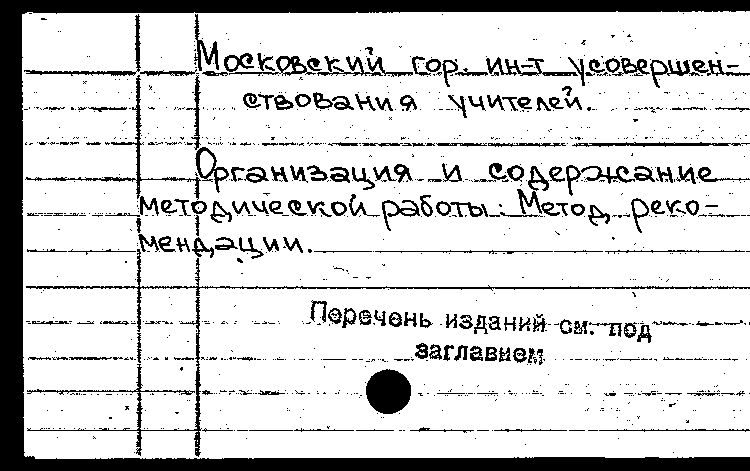 Московский гор. ин-т усовершен-
ствования учителей.
Организация и содержание
методической работы: Метод. реко-
мендации.
Перечень изданий см. под
заглавием